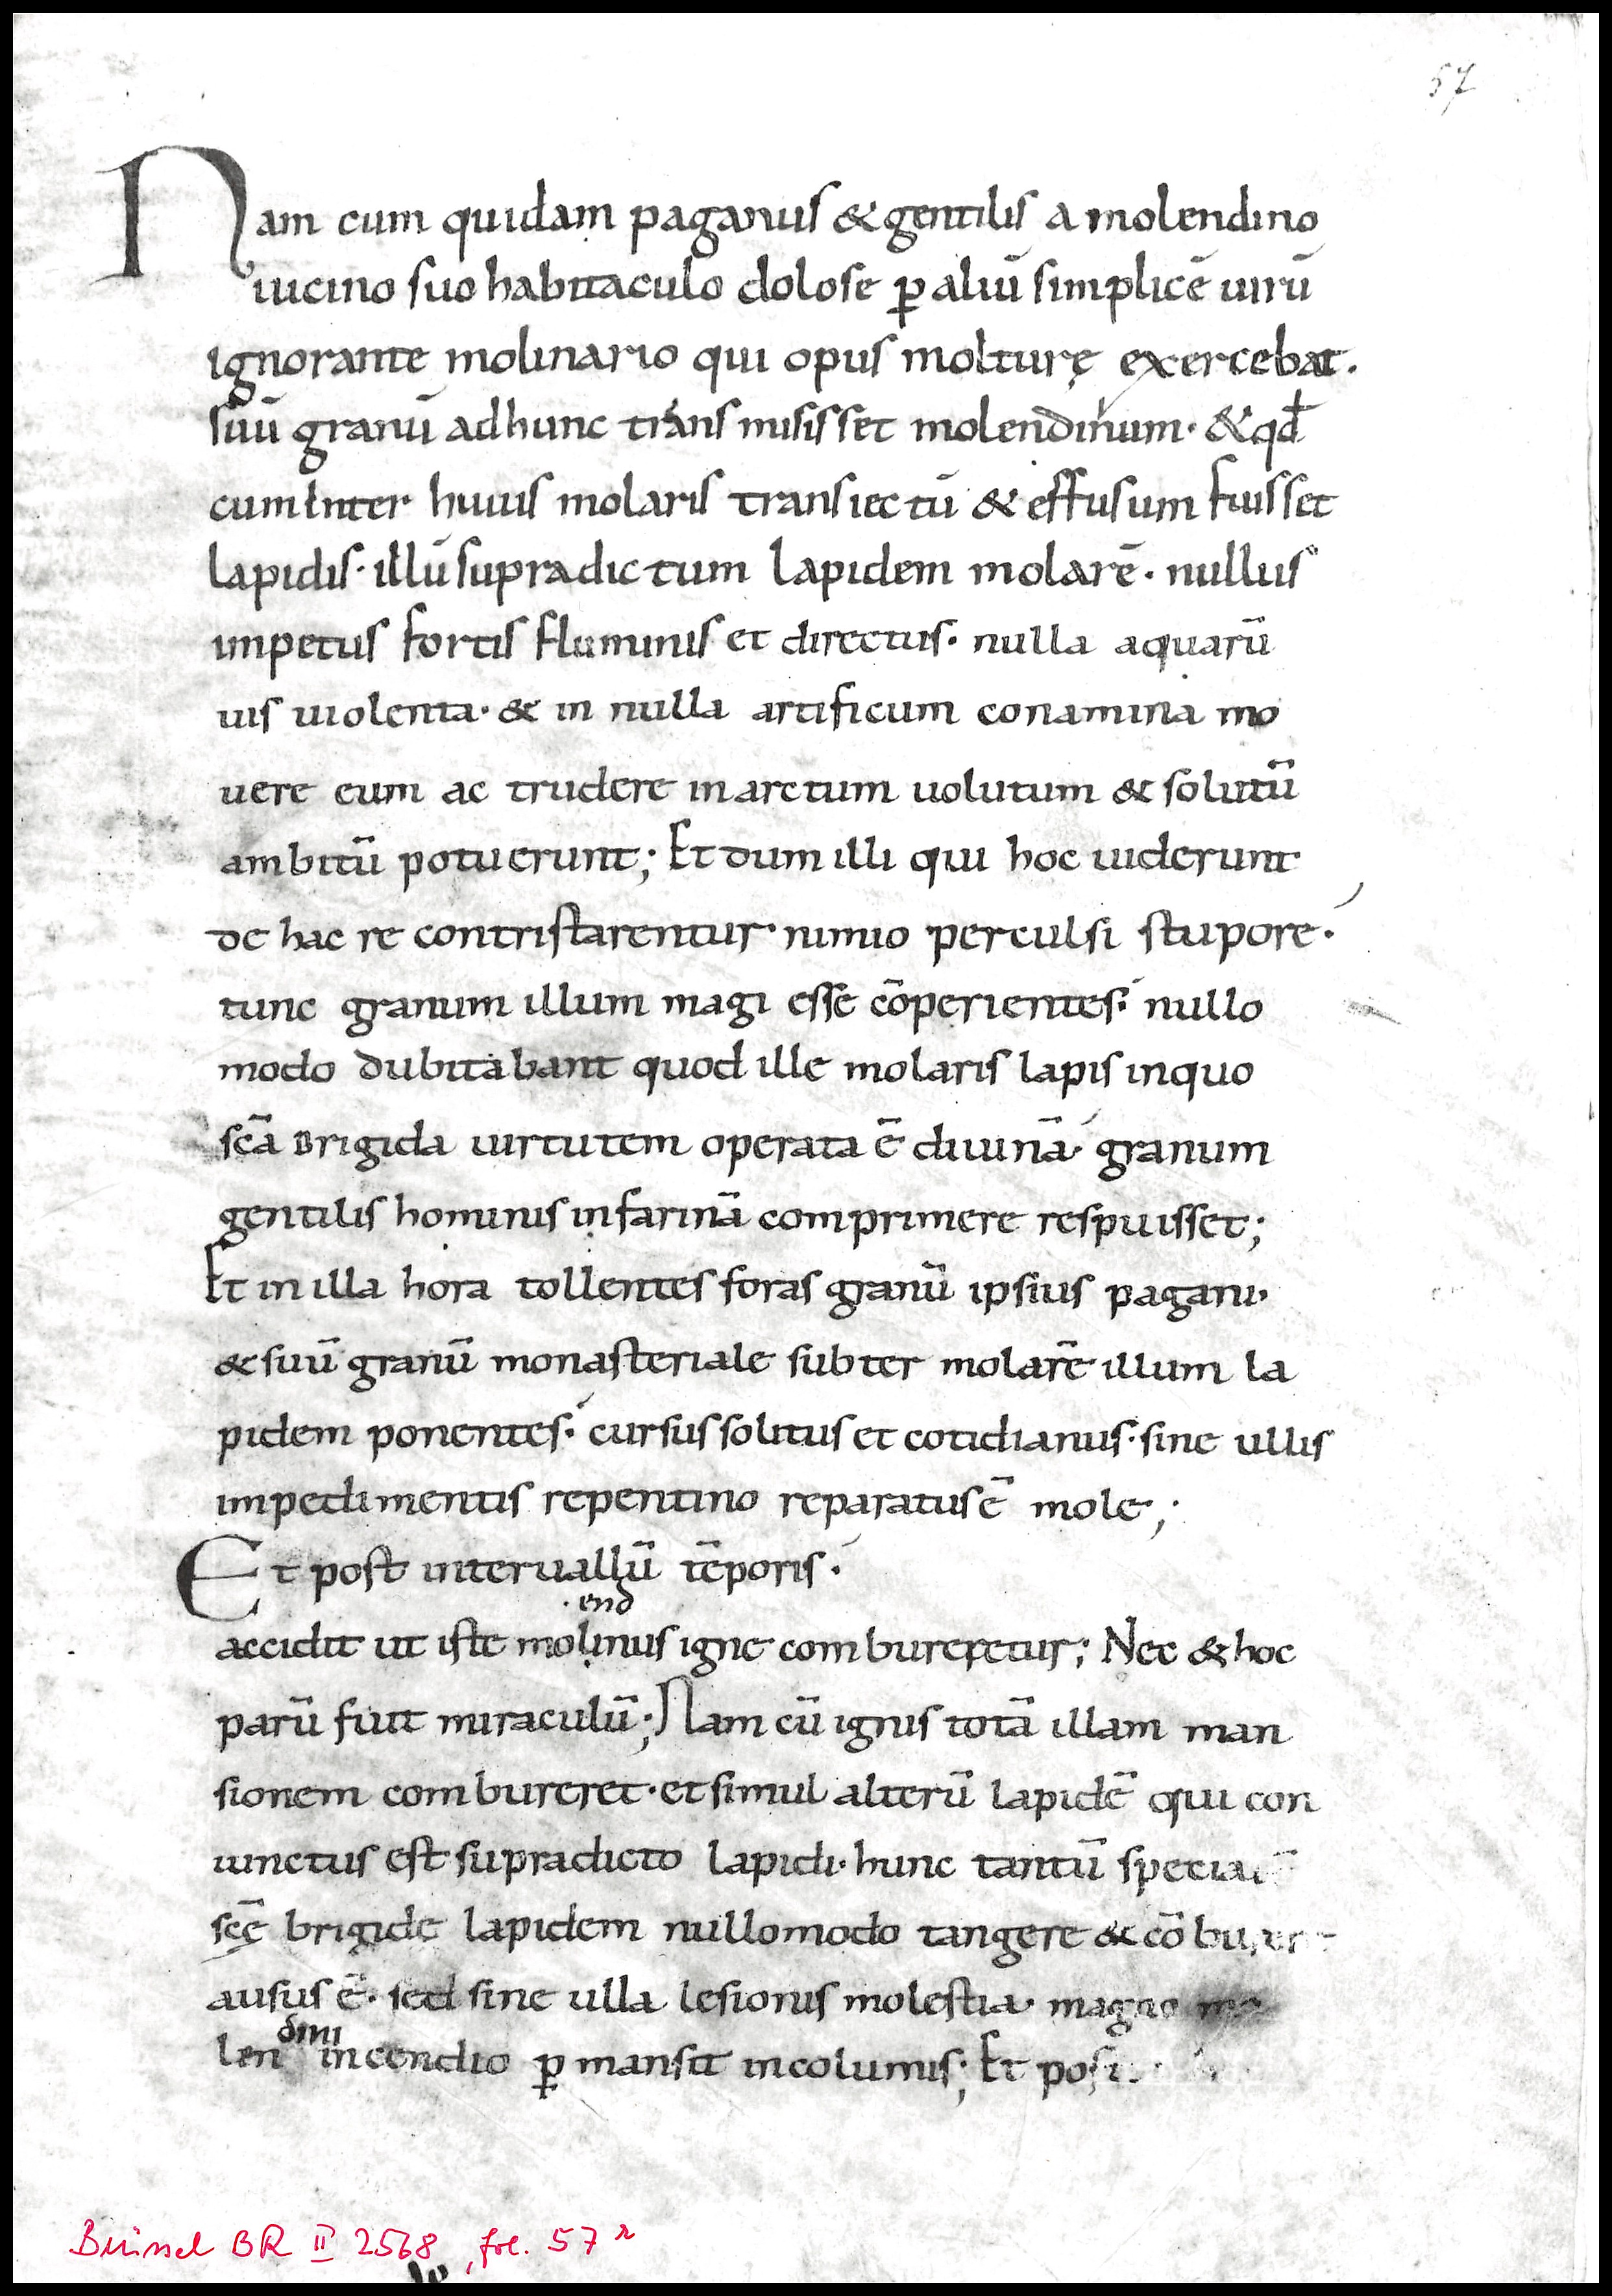 57
Nam cum quidam paganus & gentilis a molendino
uicino suo habitaculo dolose ꝑ aliū simplicē uirū
ignorante molinario qui opus molturę exercebat.
suū granū ad hunc transmisisset molendinum· & qđ
cum inter huius molaris transiectū & effusum fuisset
lapidis· illū supradictum lapidem molarē· nullus
impetus fortis fluminis et directus· nulla aquarū
uis uiolenta· & in nulla artificum conamina mo
uere eum ac trudere in arctum uolutum & solutū
ambitū potuerunt; Et dum illi qui hoc uiderunt
de hac re contristarentur· nimio perculsi stupore·
tunc granum illum magi esse cōperientes· nullo
modo dubitabant quod ille molaris lapis in quo
scā Brigida uirtutem operata ē diuinā· granum
gentilis hominis in farinā comprimere respuisset;
Et in illa hora tollentes foras granū ipsius pagani·
& suū granū monasteriale subter molarē illum la
pidem ponentes· cursus solitus et cotidianus· sine ullis
impedimentis repentino reparatus ē mole;
Et post interuallū tēporis·
·end
accidit ut iste molinus igne combureretur; Nec & hoc
parū fuit miraculū; Nam cū ignis totā illam man
sionem combureret· et simul alterū lapidē qui con
iunctus est supradicto lapidi· hunc tantū
scę brigide lapidem nullomodo tangere &
ausus ē· sed sine ulla lesionis molestia· magno mo
dini
len incendio ꝑmansit incolumis; Et
Brüssel BR II 2568, fol. 57 r